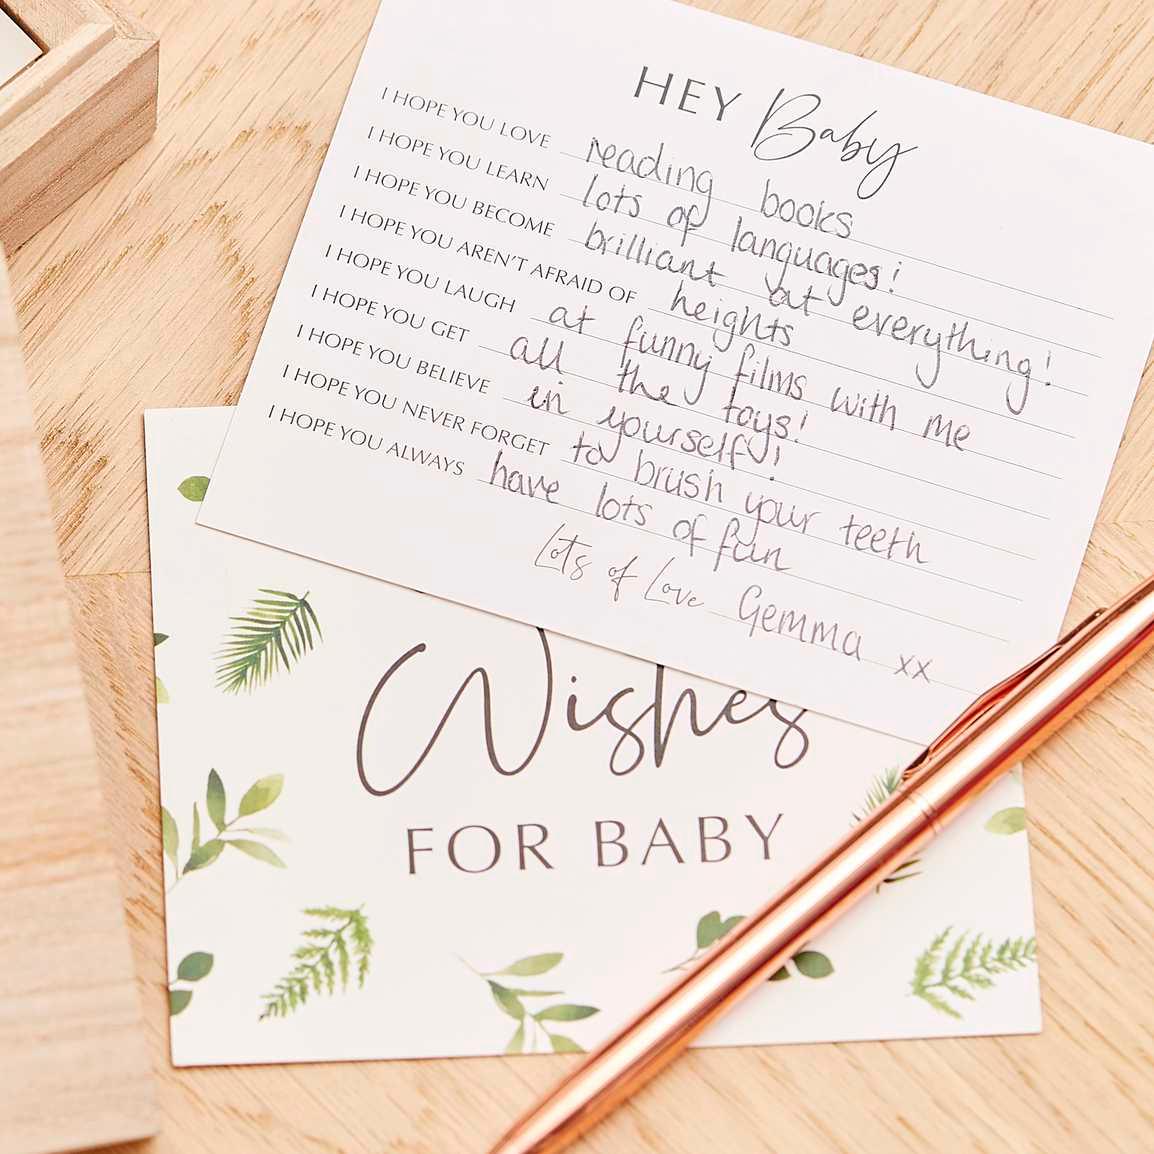 HEY Baby
I HOPE YOU LOVE reading books
I HOPE YOU LEARN lots of languages!
I HOPE YOU BECOME brilliant at everything!
I HOPE YOU AREN'T AFRAID OF heights
I HOPE YOU LAUGH at funny films with me
I HOPE YOU GET all the toys!
I HOPE YOU BELIEVE in yourself!
I HOPE YOU NEVER FORGET to brush your teeth
I HOPE YOU ALWAYS have lots of fun
Lots of Love Gemma xx
Wishes
FOR BABY